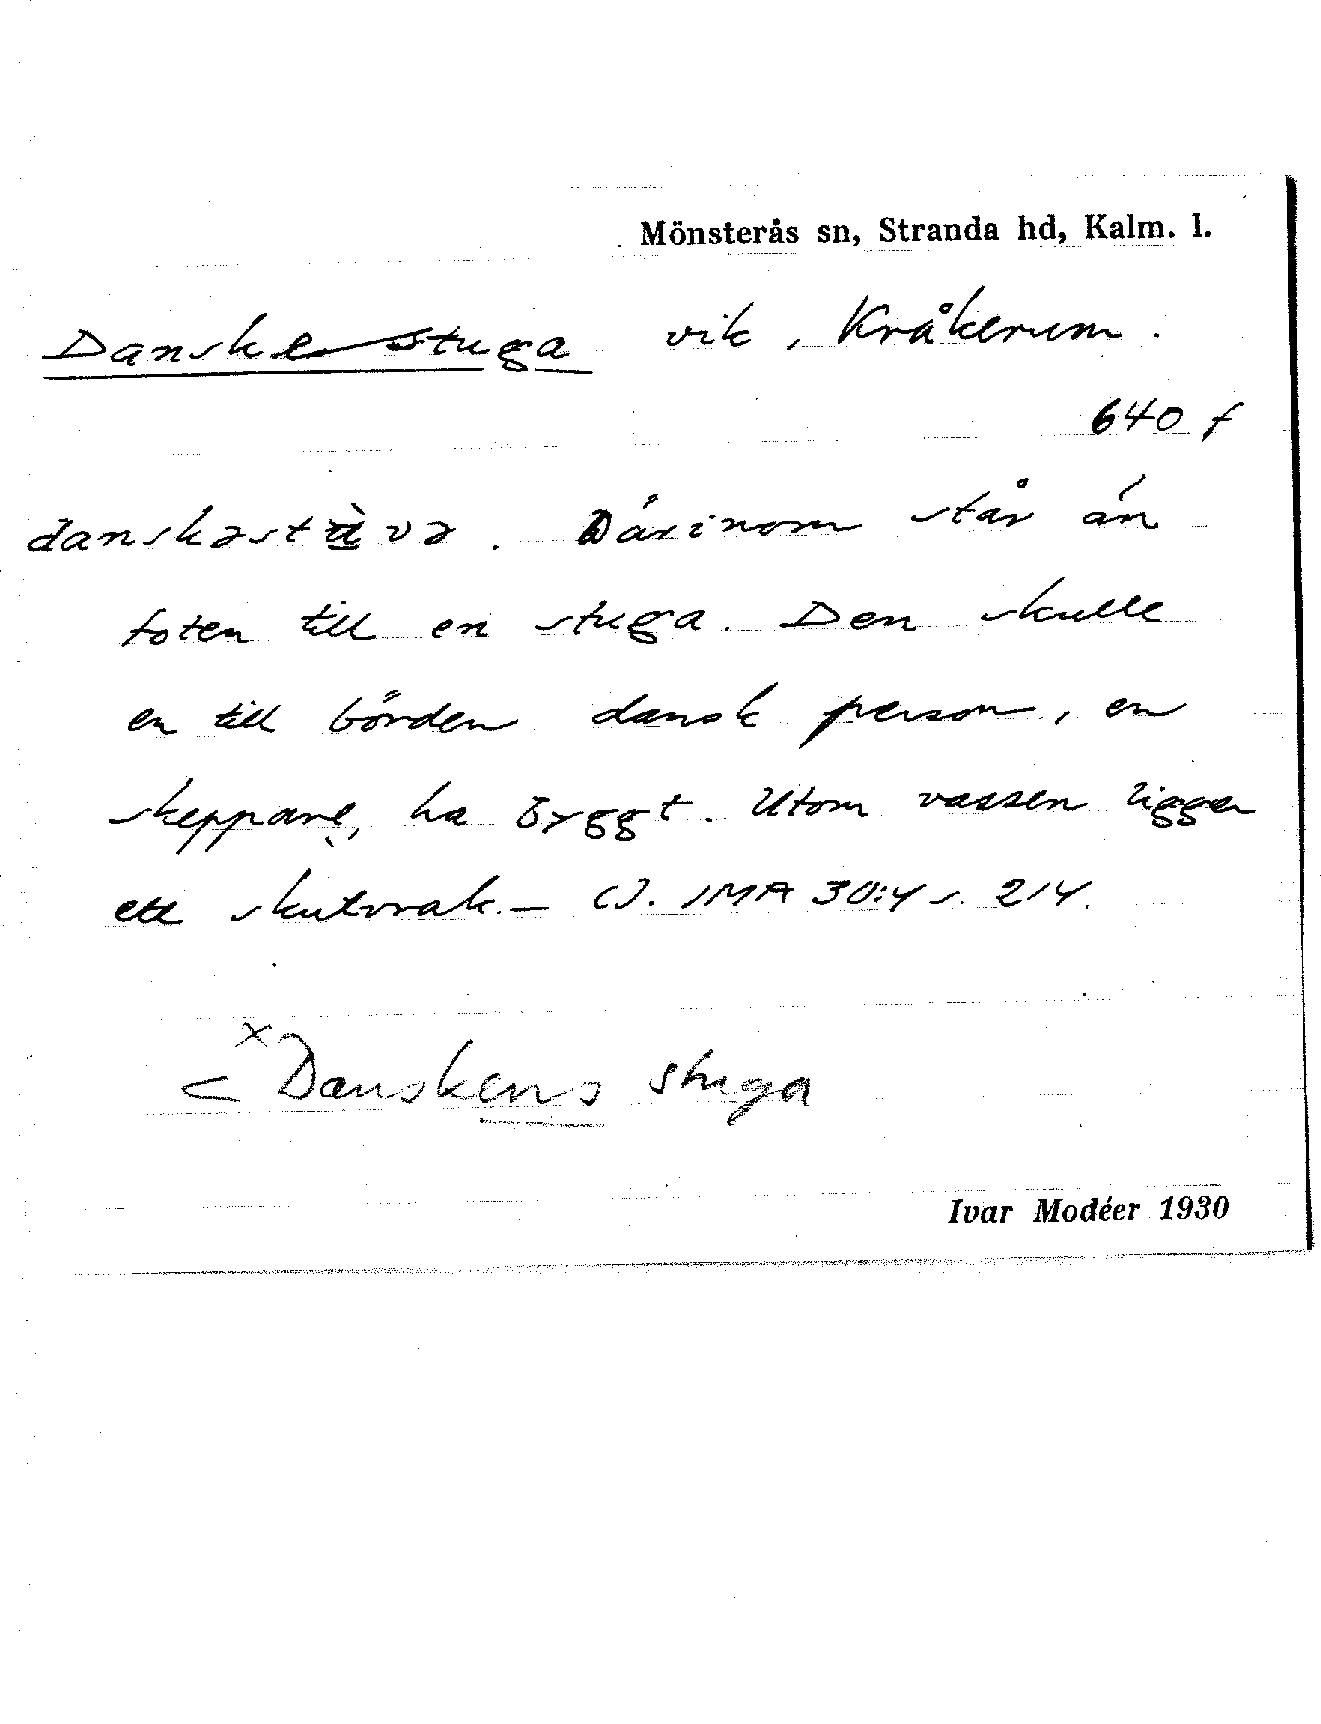 Mönsterås sn, Stranda hd, Kalm. l.
Danskestuga vik, Kråkerum.
640 f
danskəstùvə. Därinom står än
toten till en stuga. Den skulle
en till börden dansk person, en
skeppare, ha byggt. Utom vassen ligger
ett skutvrak. – CJ. IMA 30:4 s. 214.
< ˣDanskens stuga
Ivar Modéer 1930